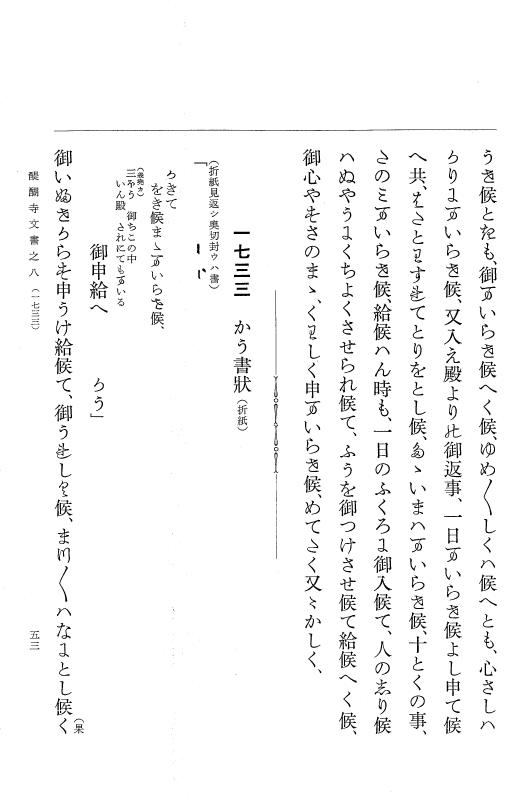 候とも、御まいらせ候へく候、ゆめ〱しくハ候へとも、心さしハ
かりにまいらせ候、又入え殿より此御返事、一日まいらせ候よし申て候
へ共、はたとわすれてとりをとし候、たゝいまハまいらせ候、十とくの事、
たのミまいらせ候、給候ハん時も、一日のふくろに御入候て、人のしり候
ハぬやうにくちよくさせられ候て、ふうを御つけさせ候て給候へく候、
御心やすさのまゝ、くわしく申まいらせ候、めてたく又〻かしく、
一七三三　かう書狀（折紙）
（折紙見返シ奧切封ウハ書）
「
かきて
をき候まゝまいらせ候、
（義堯カ）
三ほう　御ちこの中
いん殿　たれにてもまいる
御申給へ　かう」
御い　からそ申うけ給候て、御うれしく候、まつ〱ハなにとし候く（果
醍醐寺文書之八（一七三三）
五三